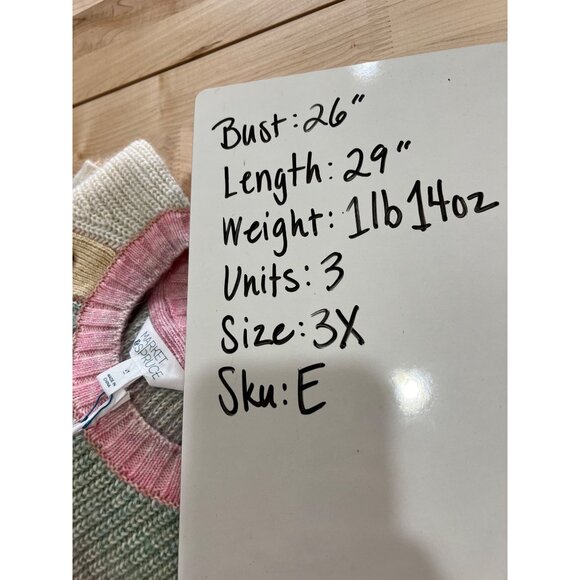 Bust: 26"
Length: 29"
Weight: 1lb 14oz
Units: 3
Size: 3X
Sku: E
MARKET
& SPRUCE
MADE IN
CHINA